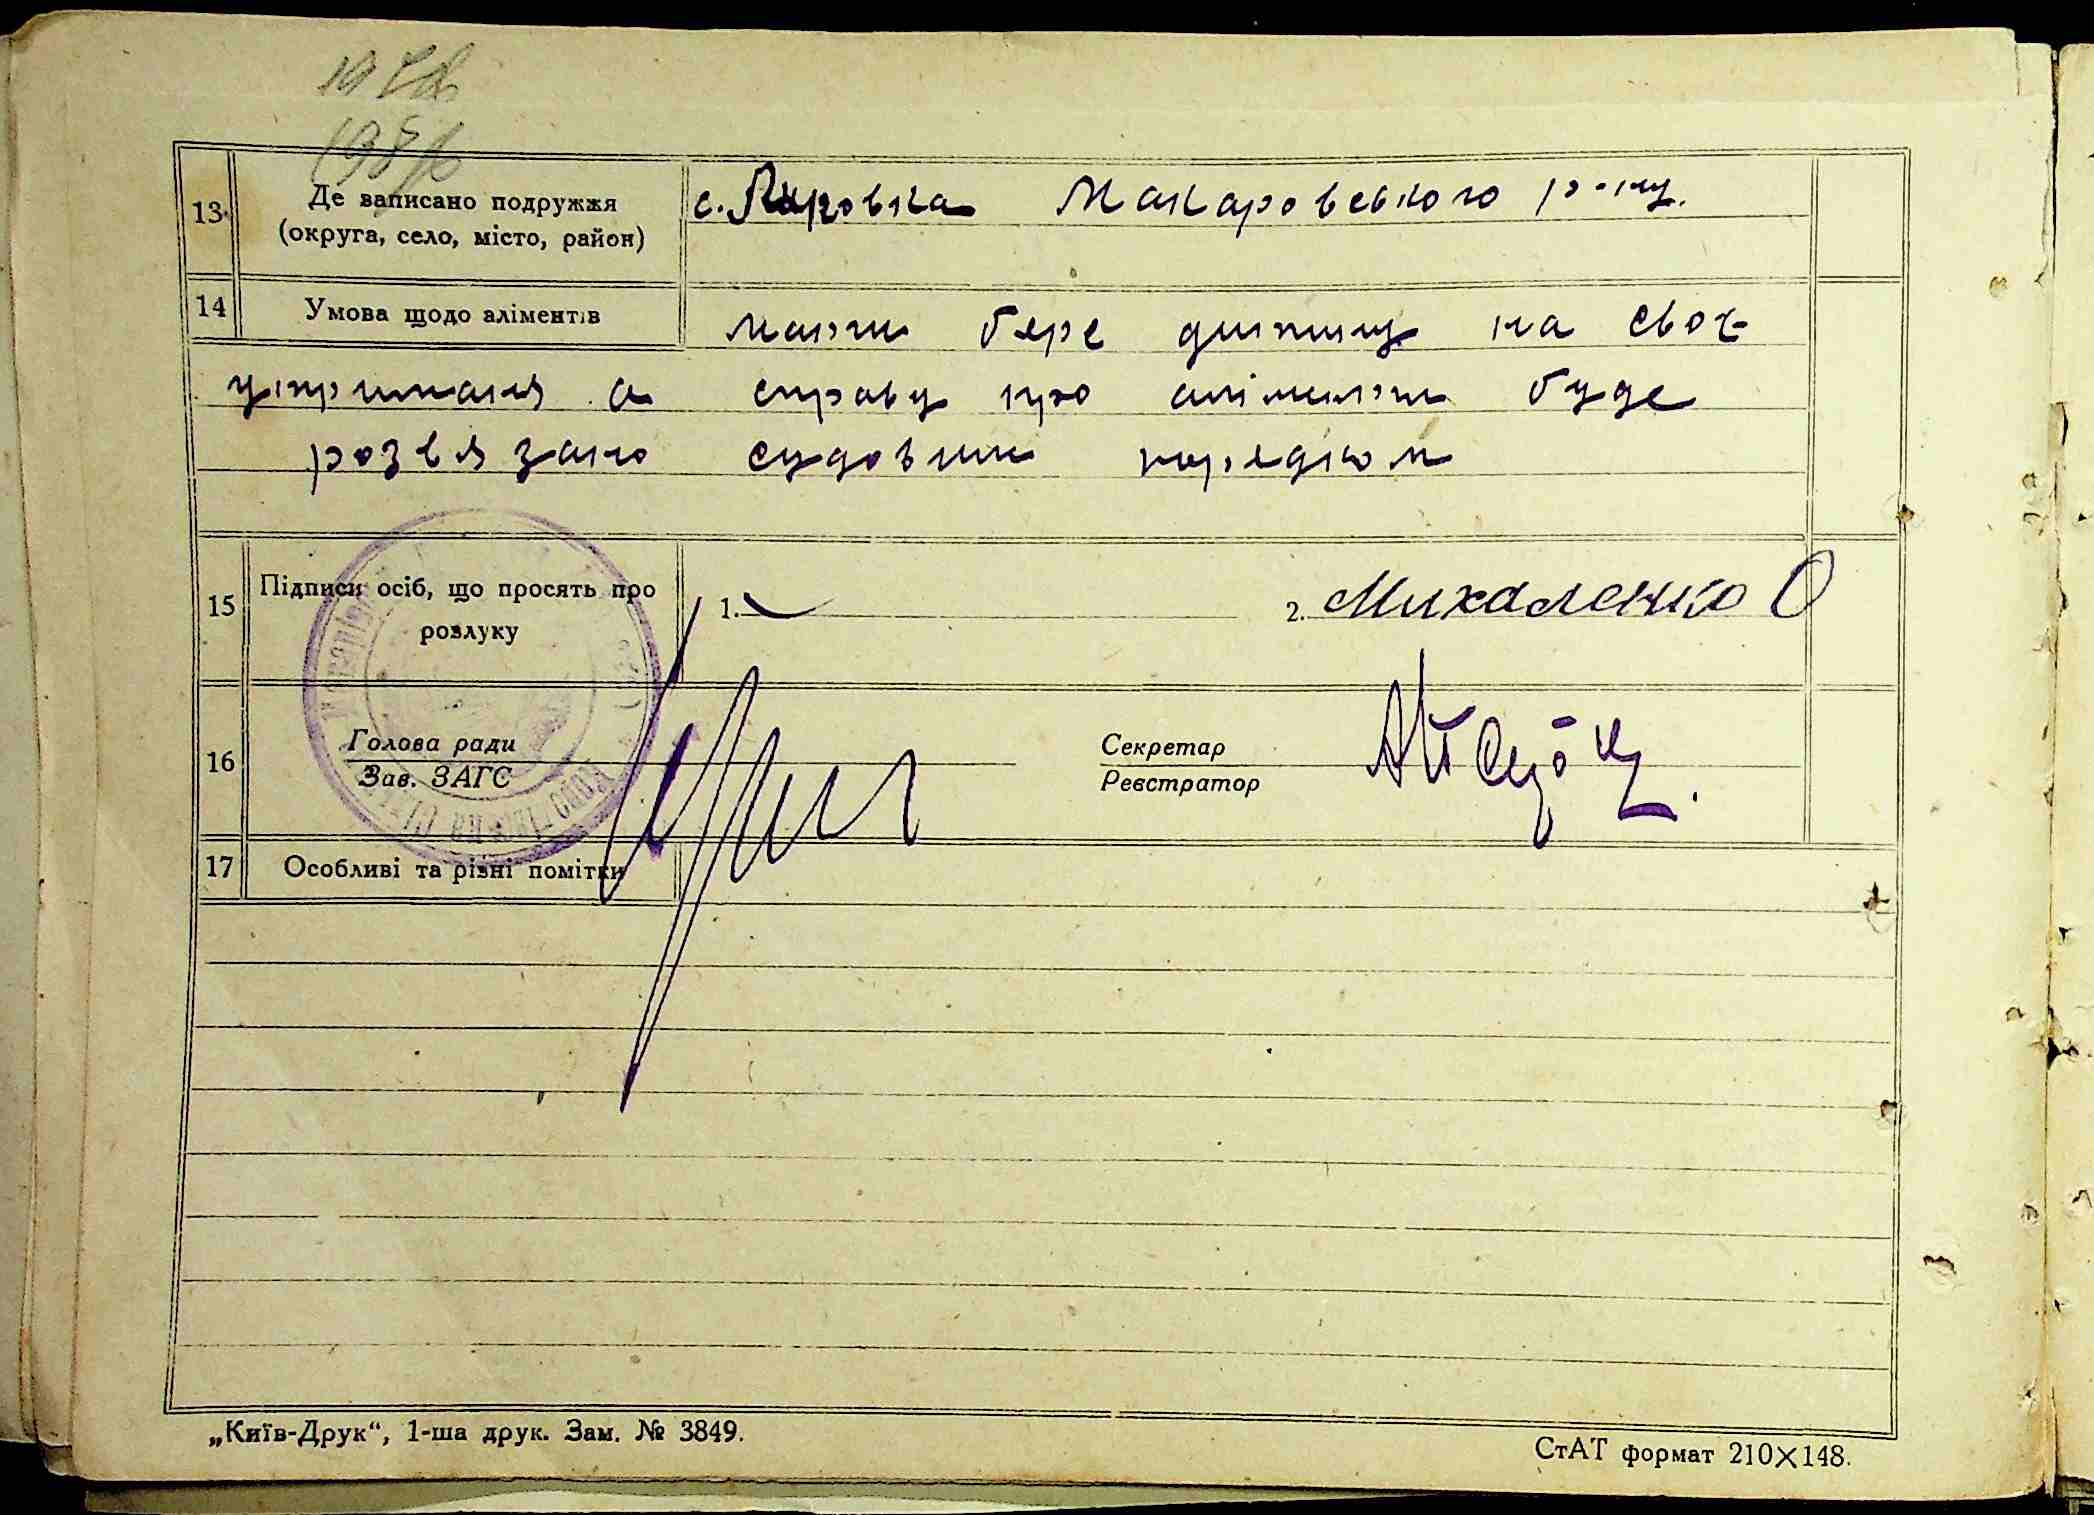 13
Де записано подружжя
(округа, село, місто, район)
с. Макаровського р-ну.
14
Умова щодо аліментів
мати бере дитину на своє
утриманя а справу про аліменти буде
розвязано судовим порядком
15
Підписи осіб, що просять про
розлуку
1.
2. Михаленко О
16
Голова ради
Зав. ЗАГС
Секретар
Реєстратор
17
Особливі та різні помітки
„Київ-Друк“, 1-ша друк. Зам. № 3849.
СтАТ формат 210×148.